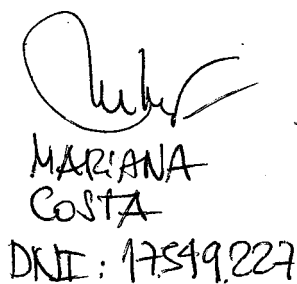 MARIANA
COSTA
DNI: 17.549.227